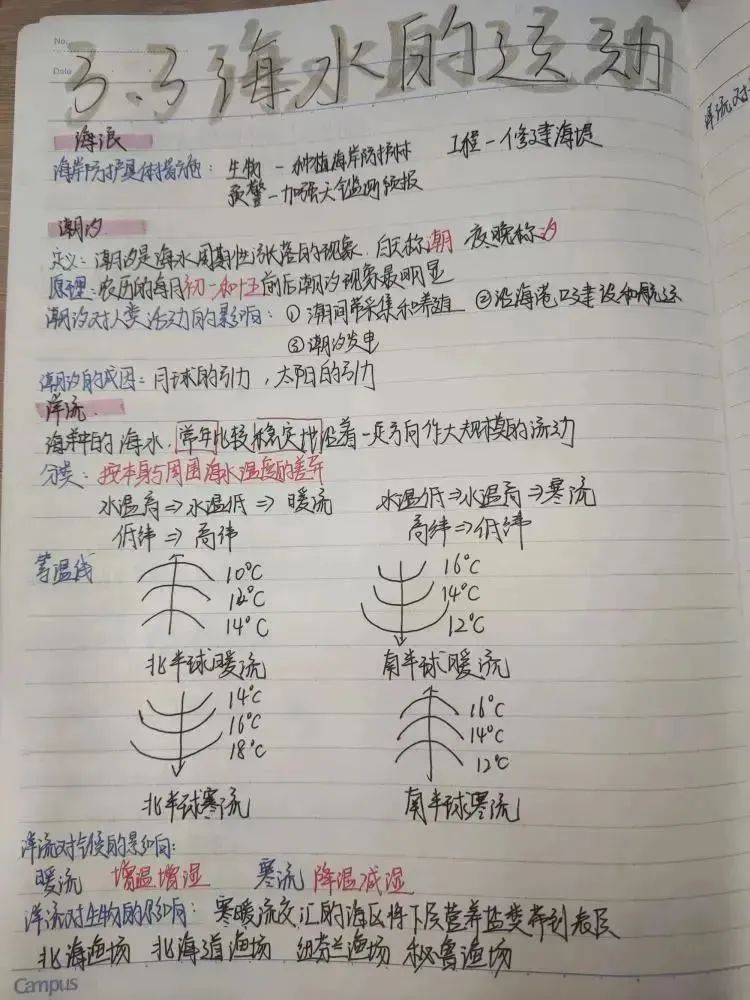 No:
Date
3.3海水的运动
海浪
海岸防护具体措施: 生物—种植海岸防护林 工程—修建海堤
预警—加强天气监测预报
潮汐
定义: 潮汐是海水周期性涨落的现象. 白天称潮 夜晚称汐
原理: 农历的每月初一和十五前后潮汐现象最明显
潮汐对人类活动的影响: ①潮间带采集和养殖 ②沿海港口建设和航运
③潮汐发电
潮汐的成因: 月球的引力, 太阳的引力
洋流
海洋中的海水, 常年比较稳定地沿着一定方向作大规模的流动
分类: 按本身与周围海水温度的差异
水温高⇒水温低⇒暖流 水温低⇒水温高⇒寒流
低纬⇒高纬 高纬⇒低纬
等温线
10℃ 16℃
12℃ 14℃
14℃ 12℃
北半球暖流 南半球暖流
14℃ 16℃
16℃ 14℃
18℃ 12℃
北半球寒流 南半球寒流
洋流对气候的影响:
暖流 增温增湿 寒流 降温减湿
洋流对生物的影响: 寒暖流交汇的海区将下层营养盐类带到表层
北海渔场 北海道渔场 纽芬兰渔场 秘鲁渔场
Campus
洋流对